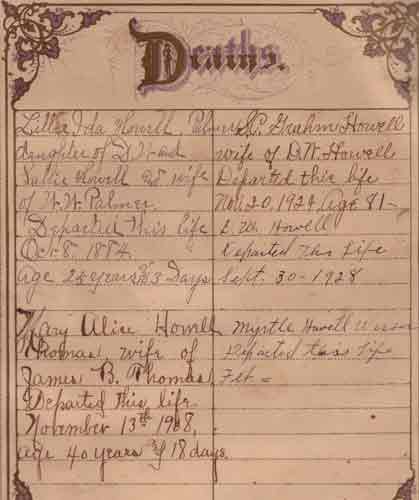 Deaths.
Lillie Ida Howell Palmer
daughter of D. W. and
Sallie Howell & wife
of W. W. Palmer
Departed this life
Oct. 8, 1884.
age 25 years 3 Days
Mary Alice Howell
Thomas, wife of
James B. Thomas,
Departed this life
November 13th 1908,
age 40 years & 18 days.
S. C. Grahm Howell
wife of D. W. Howell
Departed this life
Nov. 20, 1924 Age 81-
Howell
Departed This Life
Sept. 30 - 1928
Myrtle Howell
Departed this life
Feb -